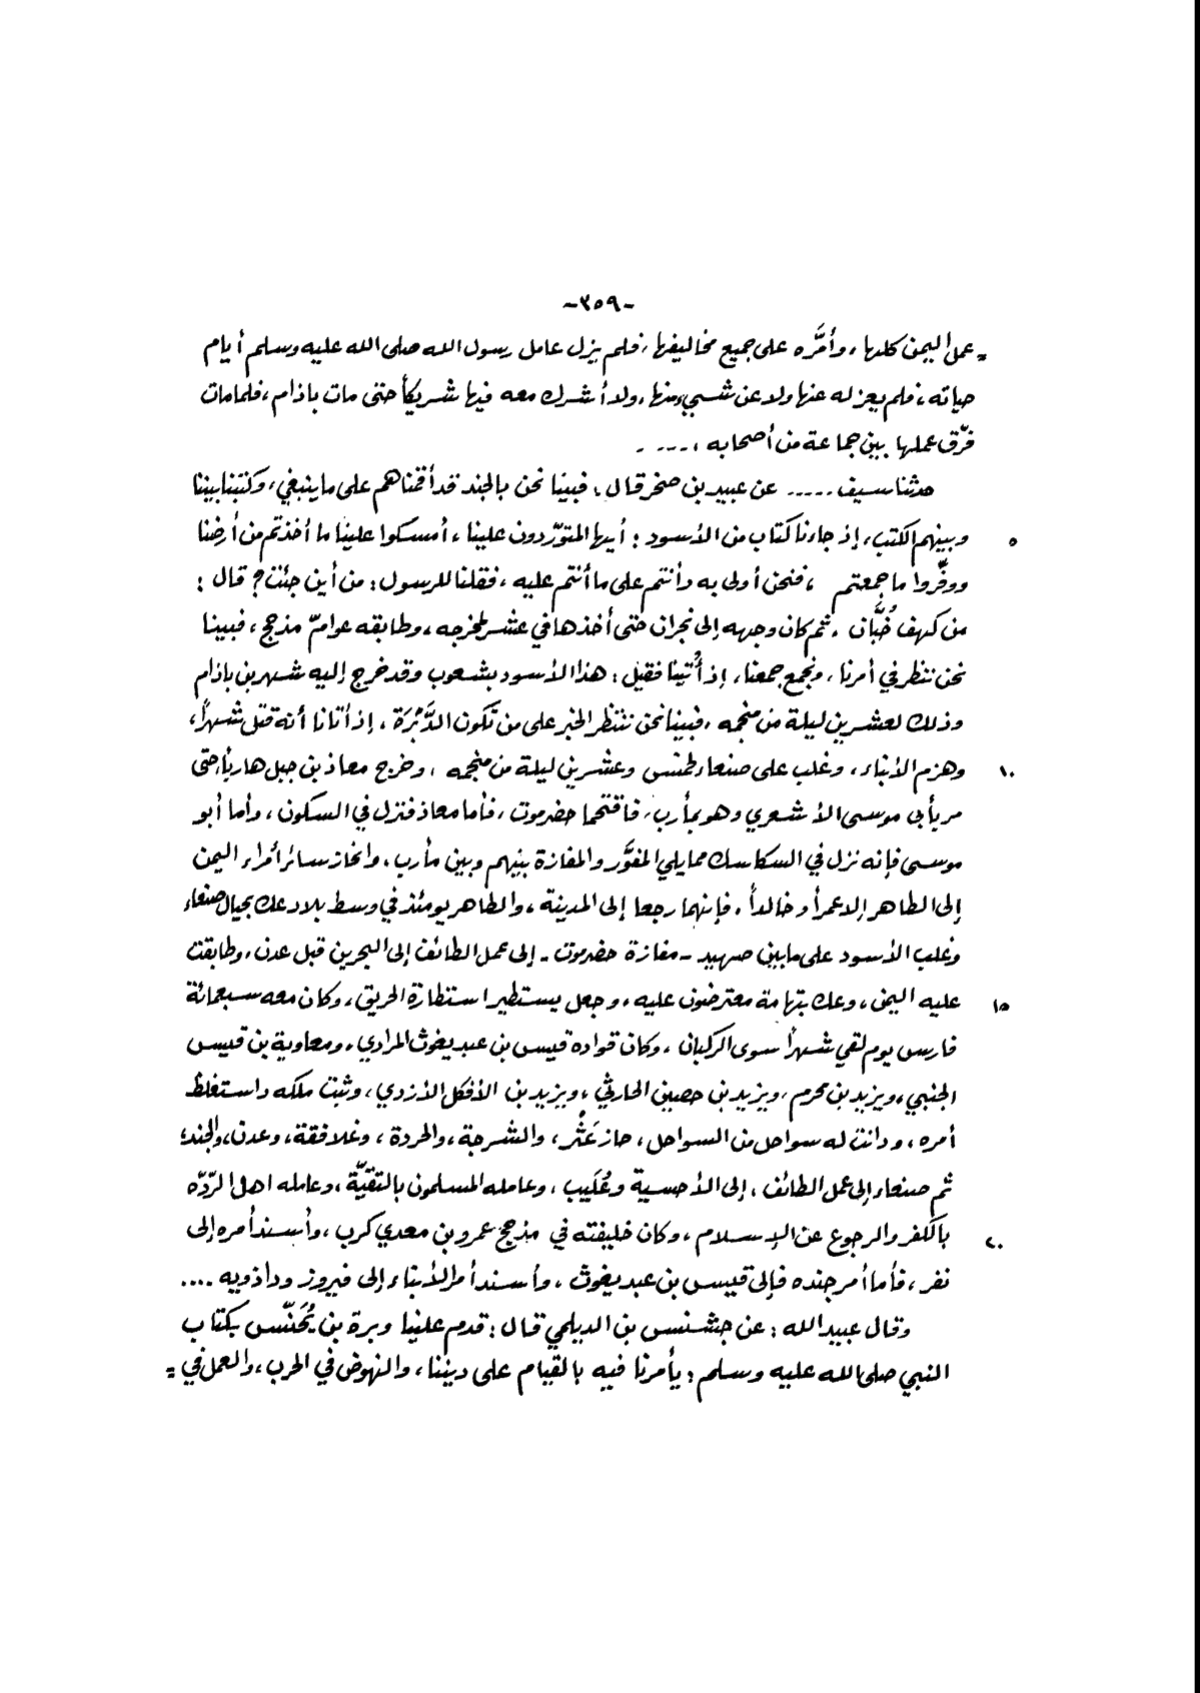 -٣٥٩-
= عمل اليمن كلها، وأمَّره على جميع مخاليفها، فلم يزل عامل رسول الله صلى الله عليه وسلم أيام
حياته، فلم يعزله عنها ولا عن شيء منها، ولا أشرك معه فيها شريكاً حتى مات باذام، فلما مات
فرّق عملها بين جماعة من أصحابه، ....
حدثنا سيف ..... عن عبيد بن صخر قال: فبينا نحن بالجند قد أقمناهم على ما ينبغي، وكتبنا بيننا
٥ وبينهم الكتب، إذ جاءنا كتاب من الأسود: أيها المتورّدون علينا، أمسكوا علينا ما أخذتم من أرضنا
ووفّروا ما جمعتم، فنحن أولى به وأنتم على ما أنتم عليه، فقلنا للرسول: من أين جئت؟ قال:
من كهف خُبَّان، ثم كان وجهه إلى نجران حتى أخذها في عشر لمخرجه، وطابقه عوامّ مذحج، فبينا
نحن ننظر في أمرنا، ونجمع جمعنا، إذ أُتينا فقيل: هذا الأسود بشعوب وقد خرج إليه شهر بن باذام
وذلك لعشرين ليلة من منجمه، فبينا نحن ننتظر الخبر على من تكون الدَّبْرَة، إذ أتانا أنه قتل شهراً،
١٠ وهزم الأبناء، وغلب على صنعاء لخمس وعشرين ليلة من منجمه، وخرج معاذ بن جبل هارباً، حتى
مر بأبي موسى الأشعري وهو بمأرب، فاقتحما حضرموت، فأما معاذ فنزل في السكون، وأما أبو
موسى فإنه نزل في السكاسك مما يلي المفوَّر والمفازة بينهم وبين مأرب، وانحاز سائر أمراء اليمن
إلى الطاهر إلا عمراً وخالداً، فإنهما رجعا إلى المدينة، والطاهر يومئذ في وسط بلاد عك بحيال صنعاء
وغلب الأسود على ما بين صهيد - مفازة حضرموت - إلى عمل الطائف إلى البحرين قبل عدن، وطابقت
١٥ عليه اليمن، وعك بتهامة معترضون عليه، وجعل يستطير استطارة الحريق، وكان معه سبعمائة
فارس يوم لقي شهراً سوى الركبان، وكان قواده قيس بن عبد يغوث المرادي، ومعاوية بن قيس
الجنبي، ويزيد بن محرم، ويزيد بن حصين الحارثي، ويزيد بن الأفكل الأزدي، وثبت ملكه واستغلظ
أمره، ودانت له سواحل من السواحل، حاز عَثْر، والشرجة، والحردة، وغلافقة، وعدن، والجند،
ثم صنعاء إلى عمل الطائف، إلى الأحسية وعُليب، وعامله المسلمون بالتقيّة، وعامله اهل الردّه
٢٠ بالكفر والرجوع عن الإسلام، وكان خليفته في مذحج عمرو بن معدي كرب، وأسند أمره إلى
نفر، فأما أمر جنده فإلى قيس بن عبد يغوث، وأسند أمر الأبناء إلى فيروز وداذويه ....
وقال عبيد الله: عن جشنس بن الديلمي قال: قدم علينا وبرة بن يُحَنّس بكتاب
النبي صلى الله عليه وسلم: يأمرنا فيه بالقيام على ديننا، والنهوض في الحرب، والعمل في =